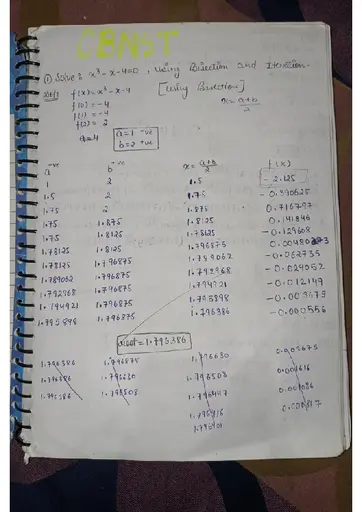 CBNST
① Solve: x³-x-4=0, using Bisection and Iteration.
Soln: f(x)=x³-x-4 [Using Bisection]
f(0) = -4 x = a+b/2
f(1) = -4
f(2) = 2
a=1 -ve
b=2 +ve
a -ve b x = a+b/2 f(x)
1 2 1.5 -2.125
1.5 2 1.75 -0.390625
1.75 2 1.875 0.716797
1.75 1.875 1.8125 0.141846
1.75 1.8125 1.78125 -0.129608
1.78125 1.8125 1.796875
1.78125 1.796875 1.789062 -0.062735
1.789062 1.796875 1.792968 -0.029052
1.792968 1.796875 1.794921 -0.012149
1.794921 1.796875 1.795898 -0.003675
1.795898 1.796875 1.796386 -0.000556
root = 1.796386
1.796386 1.796875 1.796630 0.002675
1.796386 1.796630 1.796508
1.796386 1.796508 1.796447